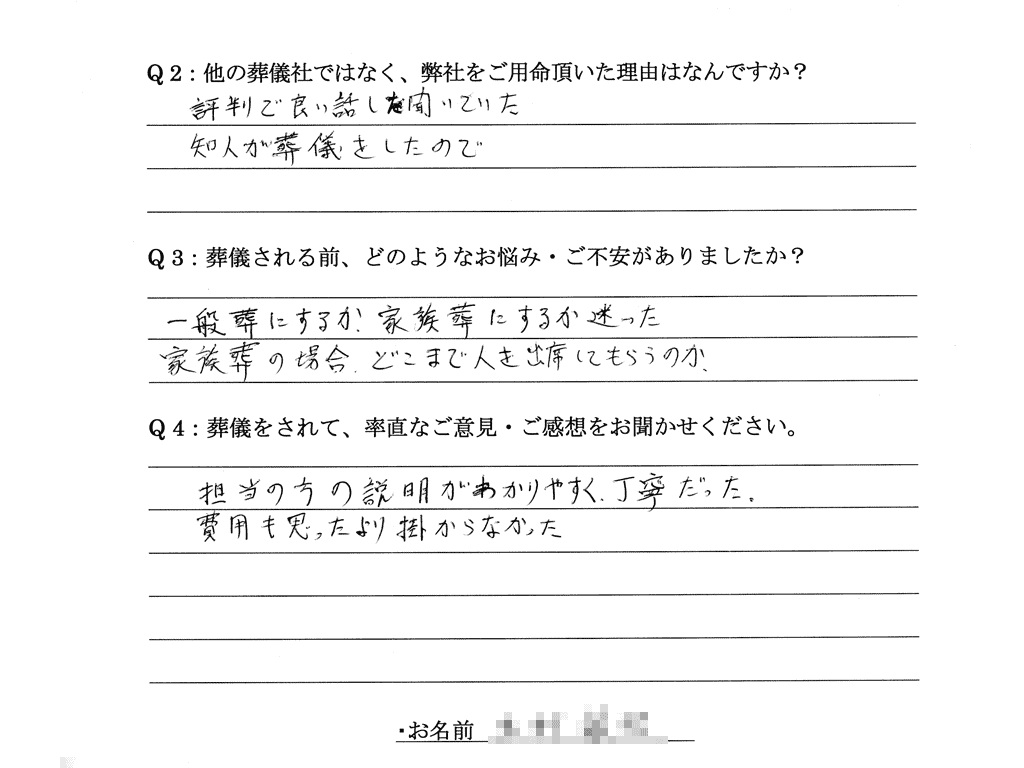 Q2：他の葬儀社ではなく、弊社をご用命頂いた理由はなんですか？
評判で良い話しを聞いていた
知人が葬儀をしたので
Q3：葬儀される前、どのようなお悩み・ご不安がありましたか？
一般葬にするか、家族葬にするか迷った
家族葬の場合、どこまで人を出席してもらうのか、
Q4：葬儀をされて、率直なご意見・ご感想をお聞かせください。
担当の方の説明がわかりやすく、丁寧だった、
費用も思ったより掛からなかった
・お名前